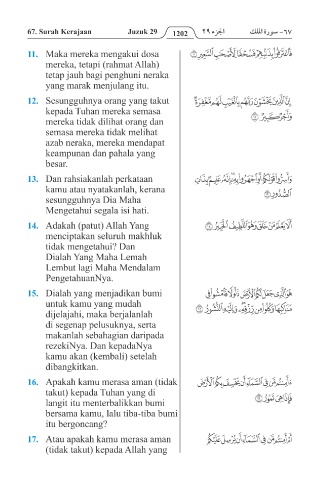 67. Surah Kerajaan Juzuk 29 1202 الجزء ٢٩ ٦٧- سورة الملك
11. Maka mereka mengakui dosa
mereka, tetapi (rahmat Allah)
tetap jauh bagi penghuni neraka
yang marak menjulang itu.
فَاعْتَرَفُوا بِذَنبِهِمْ فَسُحْقًا لِّأَصْحَابِ السَّعِيرِ ⑪
12. Sesungguhnya orang yang takut
kepada Tuhan mereka semasa
mereka tidak dilihat orang dan
semasa mereka tidak melihat
azab neraka, mereka mendapat
keampunan dan pahala yang
besar.
إِنَّ الَّذِينَ يَخْشَوْنَ رَبَّهُم بِالْغَيْبِ لَهُم مَّغْفِرَةٌ
وَأَجْرٌ كَبِيرٌ ⑫
13. Dan rahsiakanlah perkataan
kamu atau nyatakanlah, kerana
sesungguhnya Dia Maha
Mengetahui segala isi hati.
وَأَسِرُّوا قَوْلَكُمْ أَوِ اجْهَرُوا بِهِ إِنَّهُ عَلِيمٌ بِذَاتِ
الصُّدُورِ ⑬
14. Adakah (patut) Allah Yang
menciptakan seluruh makhluk
tidak mengetahui? Dan
Dialah Yang Maha Lemah
Lembut lagi Maha Mendalam
PengetahuanNya.
أَلَا يَعْلَمُ مَنْ خَلَقَ وَهُوَ اللَّطِيفُ الْخَبِيرُ ⑭
15. Dialah yang menjadikan bumi
untuk kamu yang mudah
dijelajahi, maka berjalanlah
di segenap pelusuknya, serta
makanlah sebahagian daripada
rezekiNya. Dan kepadaNya
kamu akan (kembali) setelah
dibangkitkan.
هُوَ الَّذِي جَعَلَ لَكُمُ الْأَرْضَ ذَلُولًا فَامْشُوا فِي
مَنَاكِبِهَا وَكُلُوا مِن رِّزْقِهِ وَإِلَيْهِ النُّشُورُ ⑮
16. Apakah kamu merasa aman (tidak
takut) kepada Tuhan yang di
langit itu menterbalikkan bumi
bersama kamu, lalu tiba-tiba bumi
itu bergoncang?
ءَأَمِنتُم مَّن فِي السَّمَاءِ أَن يَخْسِفَ بِكُمُ الْأَرْضَ
فَإِذَا هِيَ تَمُورُ ⑯
17. Atau apakah kamu merasa aman
(tidak takut) kepada Allah yang
أَمْ أَمِنتُم مَّن فِي السَّمَاءِ أَن يُرْسِلَ عَلَيْكُمْ